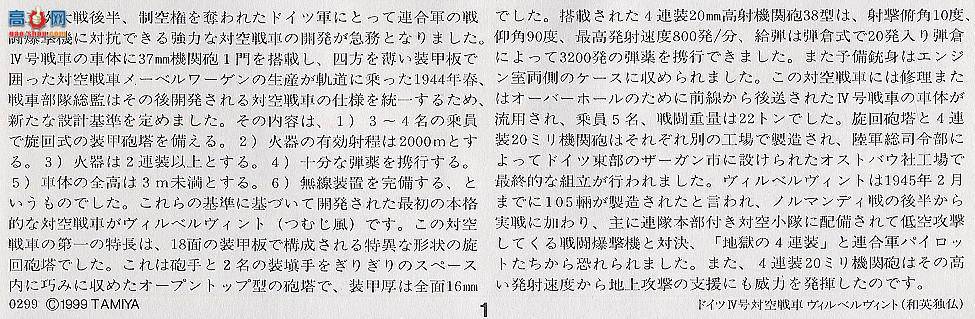 大戦後半、制空権を奪われたドイツ軍にとって連合軍の戦
闘爆撃機に対抗できる強力な対空戦車の開発が急務となりました。
Ⅳ号戦車の車体に37mm機関砲1門を搭載し、四方を薄い装甲板で
囲った対空戦車メーベルワーゲンの生産が軌道に乗った1944年春、
戦車部隊総監はその後開発される対空戦車の仕様を統一するため、
新たな設計基準を定めました。その内容は、1）3～4名の乗員
で旋回式の装甲砲塔を備える。2）火器の有効射程は2000mとす
る。3）火器は2連装以上とする。4）十分な弾薬を携行する。
5）車体の全高は3m未満とする。6）無線装置を完備する、と
いうものでした。これらの基準に基づいて開発された最初の本格
的な対空戦車がヴィルベルヴィント（つむじ風）です。この対空
戦車の第一の特長は、18面の装甲板で構成される特異な形状の旋
回砲塔でした。これは砲手と2名の装填手をぎりぎりのスペース
内に巧みに収めたオープントップ型の砲塔で、装甲厚は全面16mm
0299 ©1999 TAMIYA
でした。搭載された4連装20mm高射機関砲38型は、射撃俯角10度、
仰角90度、最高発射速度800発/分、給弾は弾倉式で20発入り弾倉
によって3200発の弾薬を携行できました。また予備銃身はエンジ
ン室両側のケースに収められました。この対空戦車には修理また
はオーバーホールのために前線から後送されたⅣ号戦車の車体が
流用され、乗員5名、戦闘重量は22トンでした。旋回砲塔と4連
装20ミリ機関砲はそれぞれ別の工場で製造され、陸軍総司令部に
よってドイツ東部のザーガン市に設けられたオストバウ社工場で
最終的な組立が行われました。ヴィルベルヴィントは1945年2月
までに105輛が製造されたと言われ、ノルマンディ戦の後半から
実戦に加わり、主に連隊本部付き対空小隊に配備されて低空攻撃
してくる戦闘爆撃機と対決、「地獄の4連装」と連合軍パイロッ
トたちから恐れられました。また、4連装20ミリ機関砲はその高
い発射速度から地上攻撃の支援にも威力を発揮したのです。
1
ドイツⅣ号対空戦車 ヴィルベルヴィント(和英独仏)